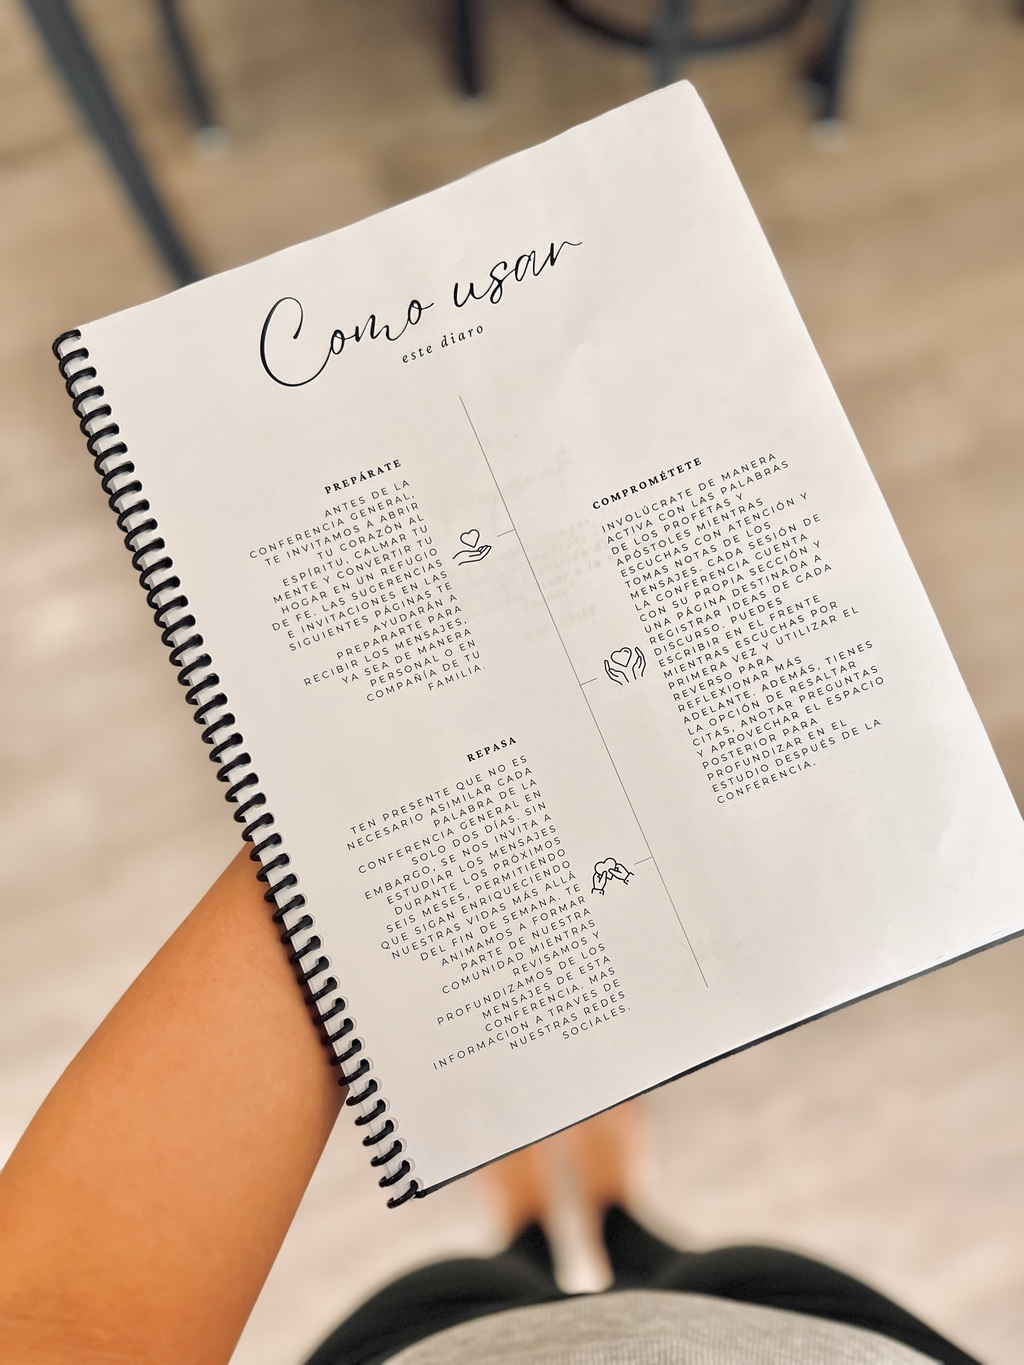 Como usar
este diaro
PREPÁRATE
ANTES DE LA
CONFERENCIA GENERAL,
TE INVITAMOS A ABRIR
TU CORAZÓN AL
ESPÍRITU, CALMAR TU
MENTE Y CONVERTIR TU
HOGAR EN UN REFUGIO
DE FE. LAS SUGERENCIAS
E INVITACIONES EN LAS
SIGUIENTES PÁGINAS TE
AYUDARÁN A
PREPARARTE PARA
RECIBIR LOS MENSAJES,
YA SEA DE MANERA
PERSONAL O EN
COMPAÑÍA DE TU
FAMILIA.
COMPROMÉTETE
INVOLÚCRATE DE MANERA
ACTIVA CON LAS PALABRAS
DE LOS PROFETAS Y
APÓSTOLES MIENTRAS
ESCUCHAS CON ATENCIÓN Y
TOMAS NOTAS DE LOS
MENSAJES. CADA SESIÓN DE
LA CONFERENCIA CUENTA
CON SU PROPIA SECCIÓN Y
UNA PÁGINA DESTINADA A
REGISTRAR IDEAS DE CADA
DISCURSO. PUEDES
ESCRIBIR EN EL FRENTE
MIENTRAS ESCUCHAS POR
PRIMERA VEZ Y UTILIZAR EL
REVERSO PARA
REFLEXIONAR MÁS
ADELANTE. ADEMÁS, TIENES
LA OPCIÓN DE RESALTAR
CITAS, ANOTAR PREGUNTAS
Y APROVECHAR EL ESPACIO
POSTERIOR PARA
PROFUNDIZAR EN EL
ESTUDIO DESPUÉS DE LA
CONFERENCIA.
REPASA
TEN PRESENTE QUE NO ES
NECESARIO ASIMILAR CADA
PALABRA DE LA
CONFERENCIA GENERAL EN
SOLO DOS DÍAS. SIN
EMBARGO, SE NOS INVITA A
ESTUDIAR LOS MENSAJES
DURANTE LOS PRÓXIMOS
SEIS MESES, PERMITIENDO
QUE SIGAN ENRIQUECIENDO
NUESTRAS VIDAS MÁS ALLÁ
DEL FIN DE SEMANA. TE
ANIMAMOS A FORMAR
PARTE DE NUESTRA
COMUNIDAD MIENTRAS
REVISAMOS Y
PROFUNDIZAMOS DE LOS
MENSAJES DE ESTA
CONFERENCIA. MAS
INFORMACION A TRAVÉS DE
NUESTRAS REDES
SOCIALES.